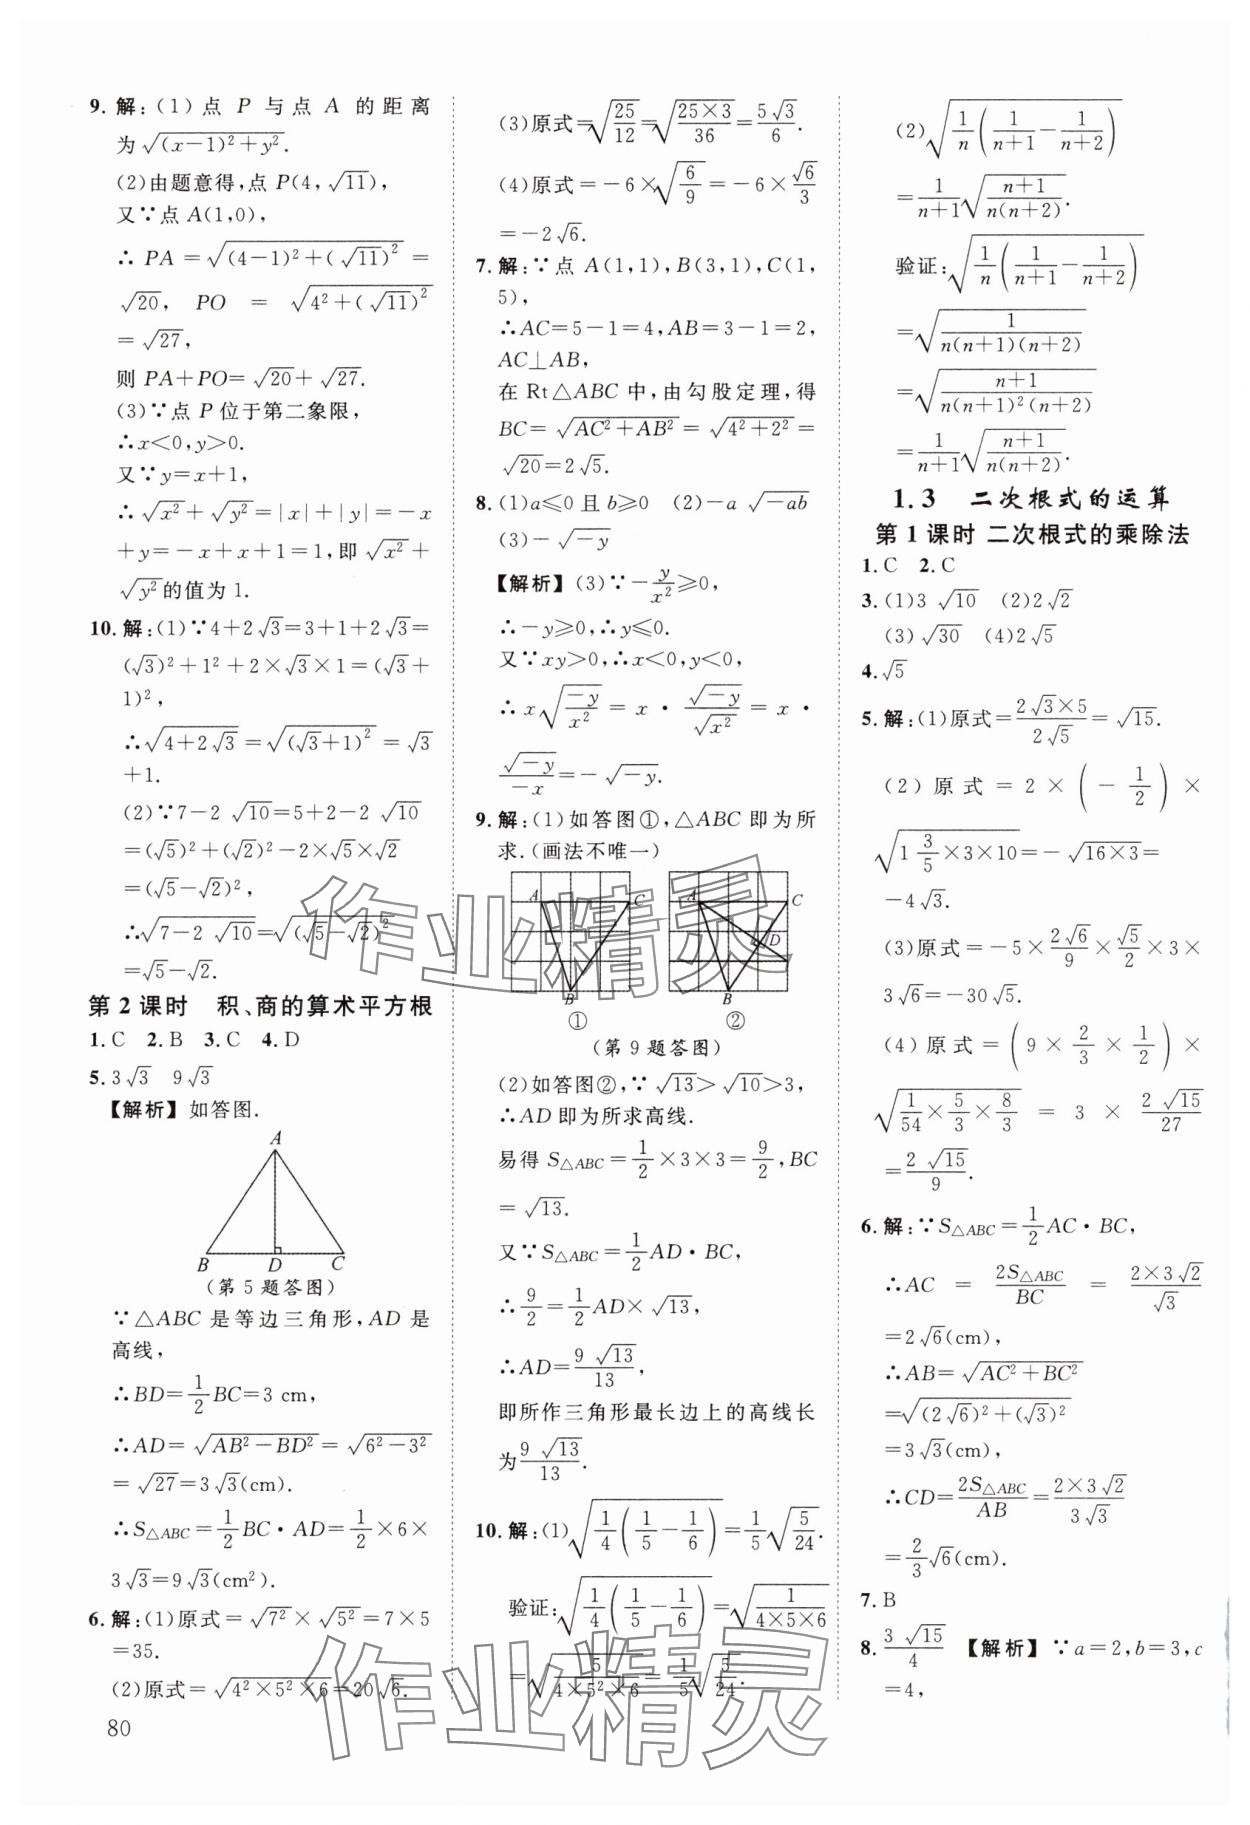 9. 解:(1)点 P 与点 A 的距离
为√((x-1)²+y²).
(2)由题意得,点 P(4,√11),
又∵点 A(1,0),
∴ PA = √((4-1)²+(√11)²) =
√20, PO = √(4²+(√11)²)
= √27,
则 PA+PO= √20+ √27.
(3)∵点 P 位于第二象限,
∴x<0,y>0.
又∵y=x+1,
∴ √x² + √y² =|x|+|y|=-x
+y=-x+x+1=1,即 √x² +
√y²的值为 1.
10. 解:(1)∵4+2√3=3+1+2√3=
(√3)²+1²+2×√3×1=(√3+
1)²,
∴√(4+2√3) =√((√3+1)²) =√3
+1.
(2)∵7-2 √10=5+2-2 √10
=(√5)²+(√2)²-2×√5×√2
=(√5-√2)²,
∴√(7-2 √10)=√((√5-√2)²)
=√5-√2.
第 2 课时 积、商的算术平方根
1. C 2. B 3. C 4. D
5. 3√3 9√3
【解析】如答图.
A
B D C
(第 5 题答图)
∵△ABC 是等边三角形,AD 是
高线,
∴BD=1/2 BC=3 cm,
∴AD= √(AB²-BD²) = √(6²-3²)
= √27=3√3(cm).
∴S△ABC=1/2 BC·AD=1/2×6×
3√3=9√3(cm²).
6. 解:(1)原式= √7² × √5² =7×5
=35.
(2)原式= √(4²×5²×6)=20√6.
80
(3)原式=√(25/12)=√((25×3)/36)=5√3/6.
(4)原式=-6×√(6/9)=-6×√6/3
=-2√6.
7. 解:∵点 A(1,1),B(3,1),C(1,
5),
∴AC=5-1=4,AB=3-1=2,
AC⊥AB,
在 Rt△ABC 中,由勾股定理,得
BC= √(AC²+AB²) = √(4²+2²) =
√20=2√5.
8. (1)a≤0 且 b≥0 (2)-a √(-ab)
(3)- √(-y)
【解析】(3)∵-y/x²≥0,
∴-y≥0,∴y≤0.
又∵xy>0,∴x<0,y<0,
∴ x√(-y/x²) = x · √(-y)/√x² = x ·
√(-y)/(-x)=- √(-y).
9. 解:(1)如答图①,△ABC 即为所
求.(画法不唯一)
A C B ①
A C D B ②
(第 9 题答图)
(2)如答图②,∵ √13> √10>3,
∴AD 即为所求高线.
易得 S△ABC=1/2×3×3=9/2,BC
= √13.
又∵S△ABC=1/2 AD·BC,
∴9/2=1/2 AD× √13,
∴AD=9 √13/13,
即所作三角形最长边上的高线长
为9 √13/13.
10. 解:(1)√(1/4(1/5-1/6))=1/5√(5/24).
验证:√(1/4(1/5-1/6))=√(1/(4×5×6))
=√(5/(4×5²×6))=1/5√(5/24).
(2)√(1/n(1/(n+1)-1/(n+2)))
=1/(n+1)√((n+1)/(n(n+2))).
验证:√(1/n(1/(n+1)-1/(n+2)))
=√(1/(n(n+1)(n+2)))
=√((n+1)/(n(n+1)²(n+2)))
=1/(n+1)√((n+1)/(n(n+2))).
1.3 二次根式的运算
第 1 课时 二次根式的乘除法
1. C 2. C
3. (1)3 √10 (2)2√2
(3)√30 (4)2√5
4. √5
5. 解:(1)原式=(2√3×5)/(2√5)= √15.
(2)原式=2×(-1/2)×
√(1 3/5×3×10)=- √(16×3)=
-4√3.
(3)原式=-5×2√6/9×√5/2×3×
3√6=-30√5.
(4)原式=(9×2/3×1/2)×
√(1/54×5/3×8/3) = 3 × 2 √15/27
=2 √15/9.
6. 解:∵S△ABC=1/2 AC·BC,
∴AC = 2S△ABC/BC = (2×3√2)/√3
=2√6(cm),
∴AB= √(AC²+BC²)
=√((2√6)²+(√3)²)
=3√3(cm),
∴CD=2S△ABC/AB=(2×3√2)/(3√3)
=2/3√6(cm).
7. B
8. 3 √15/4 【解析】∵a=2,b=3,c
=4,
作业精灵
作业精灵